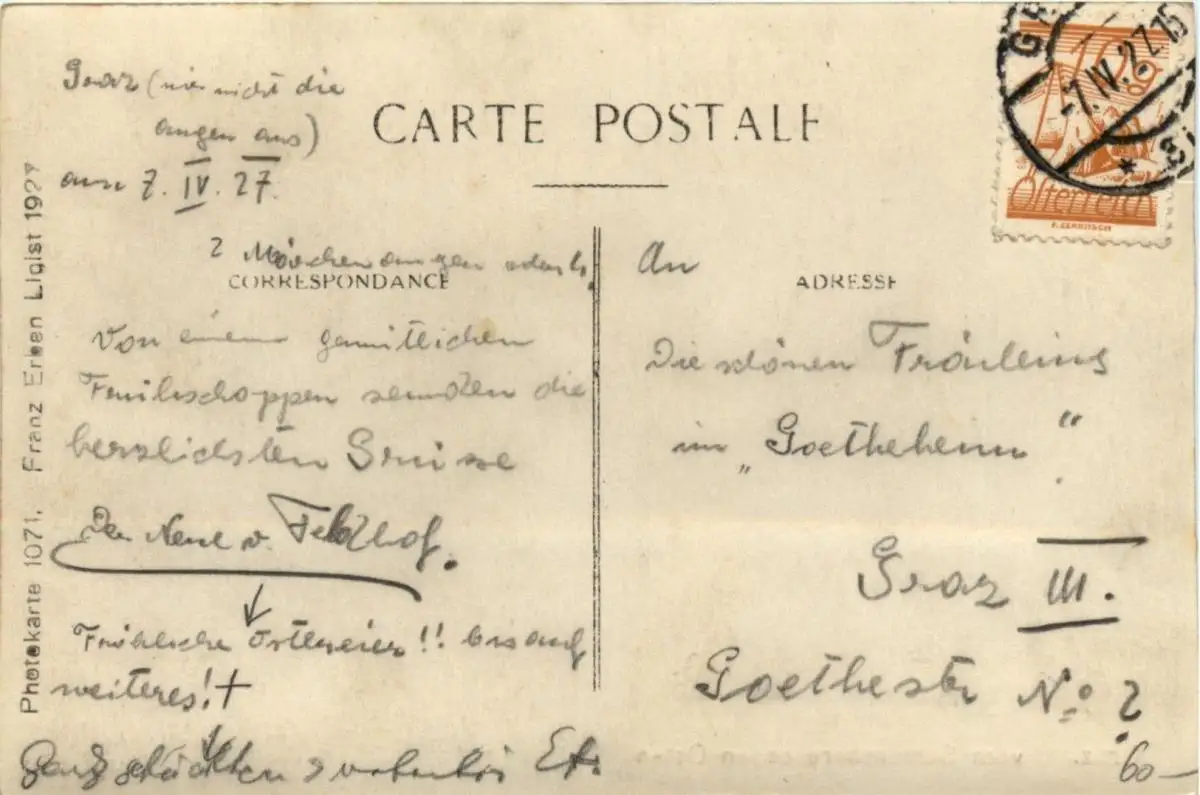 Graz (nur nicht die
augen aus)
am 7. IV. 27.
CARTE POSTALE
CORRESPONDANCE
ADRESSE
2 Märchenaugen
Von einem gemütlichen
Frühschoppen senden die
herzlichsten Grüsse
Der Neue v.
Fröhliche Osterneier!! bis auf
weiteres!+
Ganz
An
Die schönen Fräuleins
im „Goetheheim“
Graz III.
Goethestr No. 2
60–
Photokarte 1071. Franz Erben Ligist 1927
GR
-7.IV.27.15
10 g
Österreich